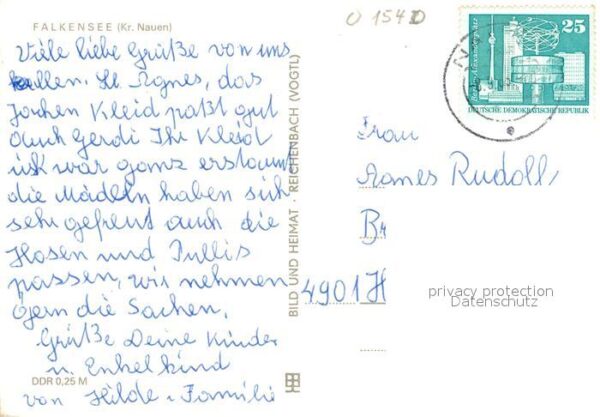 FALKENSEE (Kr. Nauen)
Viele liebe Grüße von uns
allen. Lb. Agnes, das
Jochen Kleid paßt gut
auch Gerdi Ihr Kleid
ich war ganz erstaunt
die Mädeln haben sich
sehr gefreut auch die
Hosen und Pullis
passen, wir nehmen
gern die Sachen.
Grüße Deine Kinder
u. Enkelkind
von Hilde u. Familie
DDR 0,25 M
BILD UND HEIMAT · REICHENBACH (VOGTL)
O 154 D
25
Berlin · Alexanderplatz
DEUTSCHE DEMOKRATISCHE REPUBLIK
Frau
Agnes Rudolf,
4901 H
privacy protection
Datenschutz